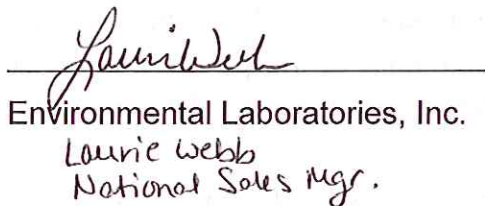 Laurie Webb
Environmental Laboratories, Inc.
Laurie Webb
National Sales Mgr.